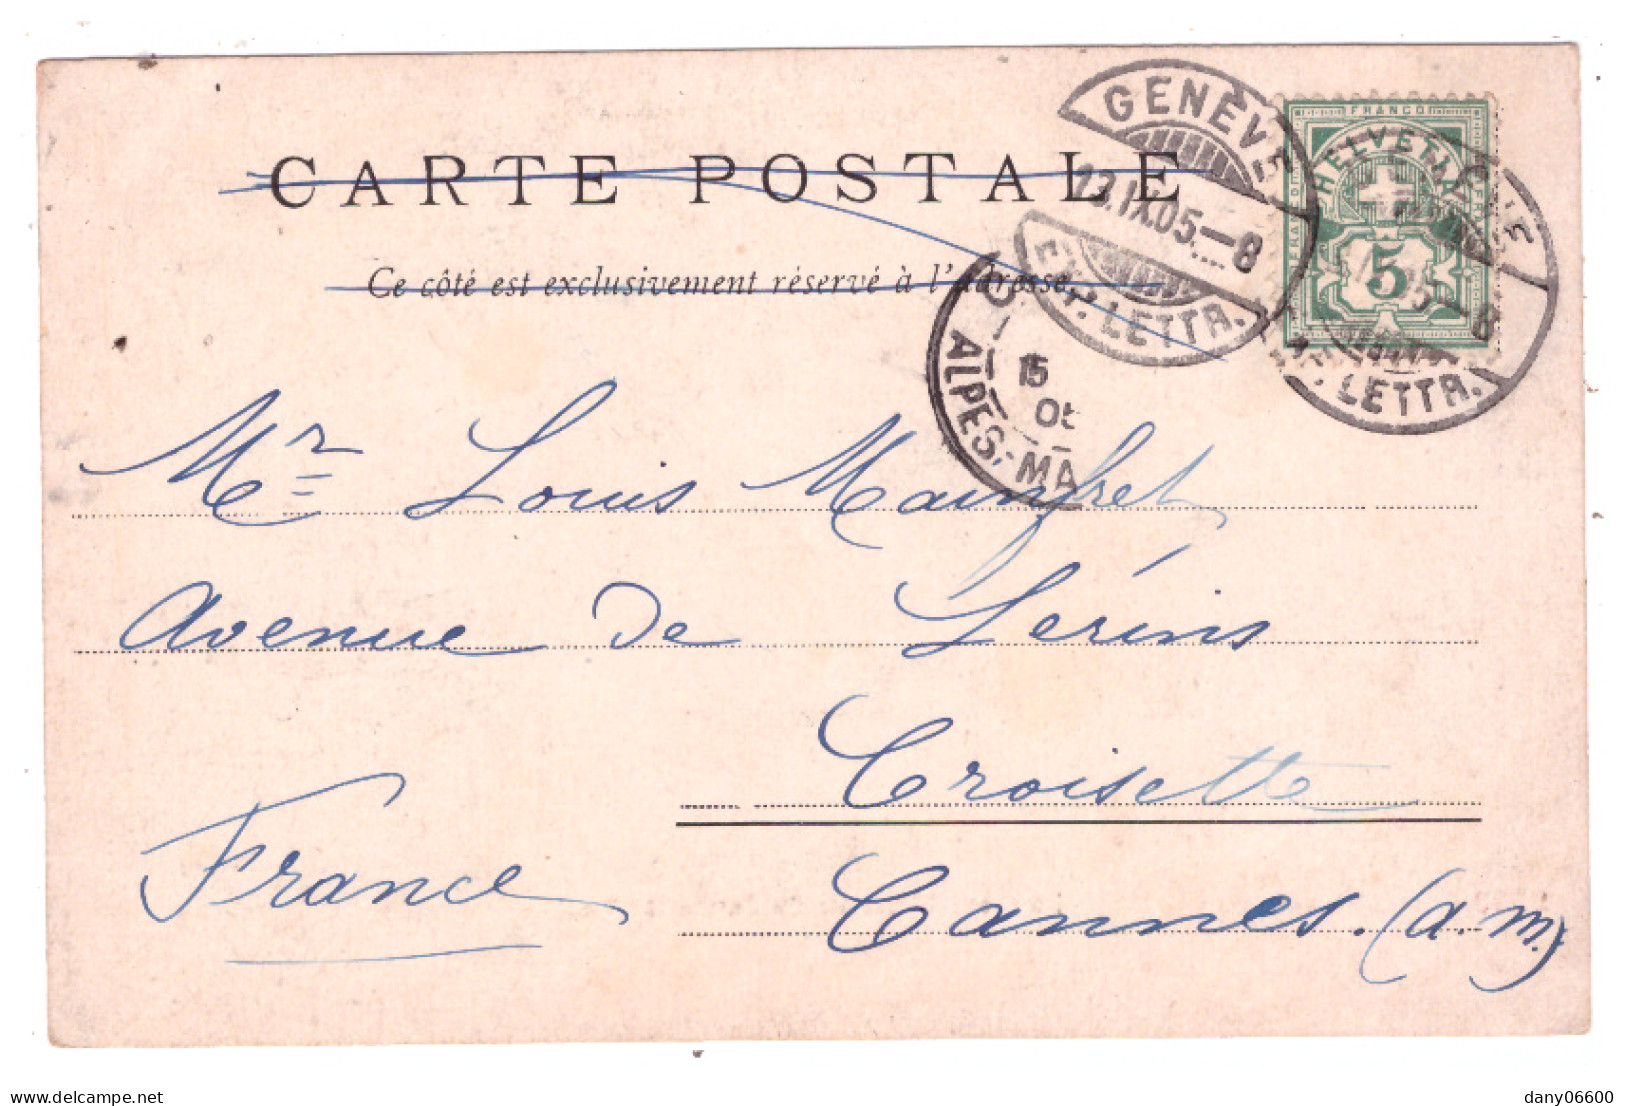 CARTE POSTALE
Ce côté est exclusivement réservé à l'adresse.
GENÈVE
13.IX.05.–8
EXP. LETTR.
FRANCO
HELVETIA
5
–8
EXP. LETTR.
15
05
ALPES-MA
Mr Louis Mainfret
Avenue de Lérins
Croisette
France
Cannes. (a.m.)
delcampe.net
dany06600